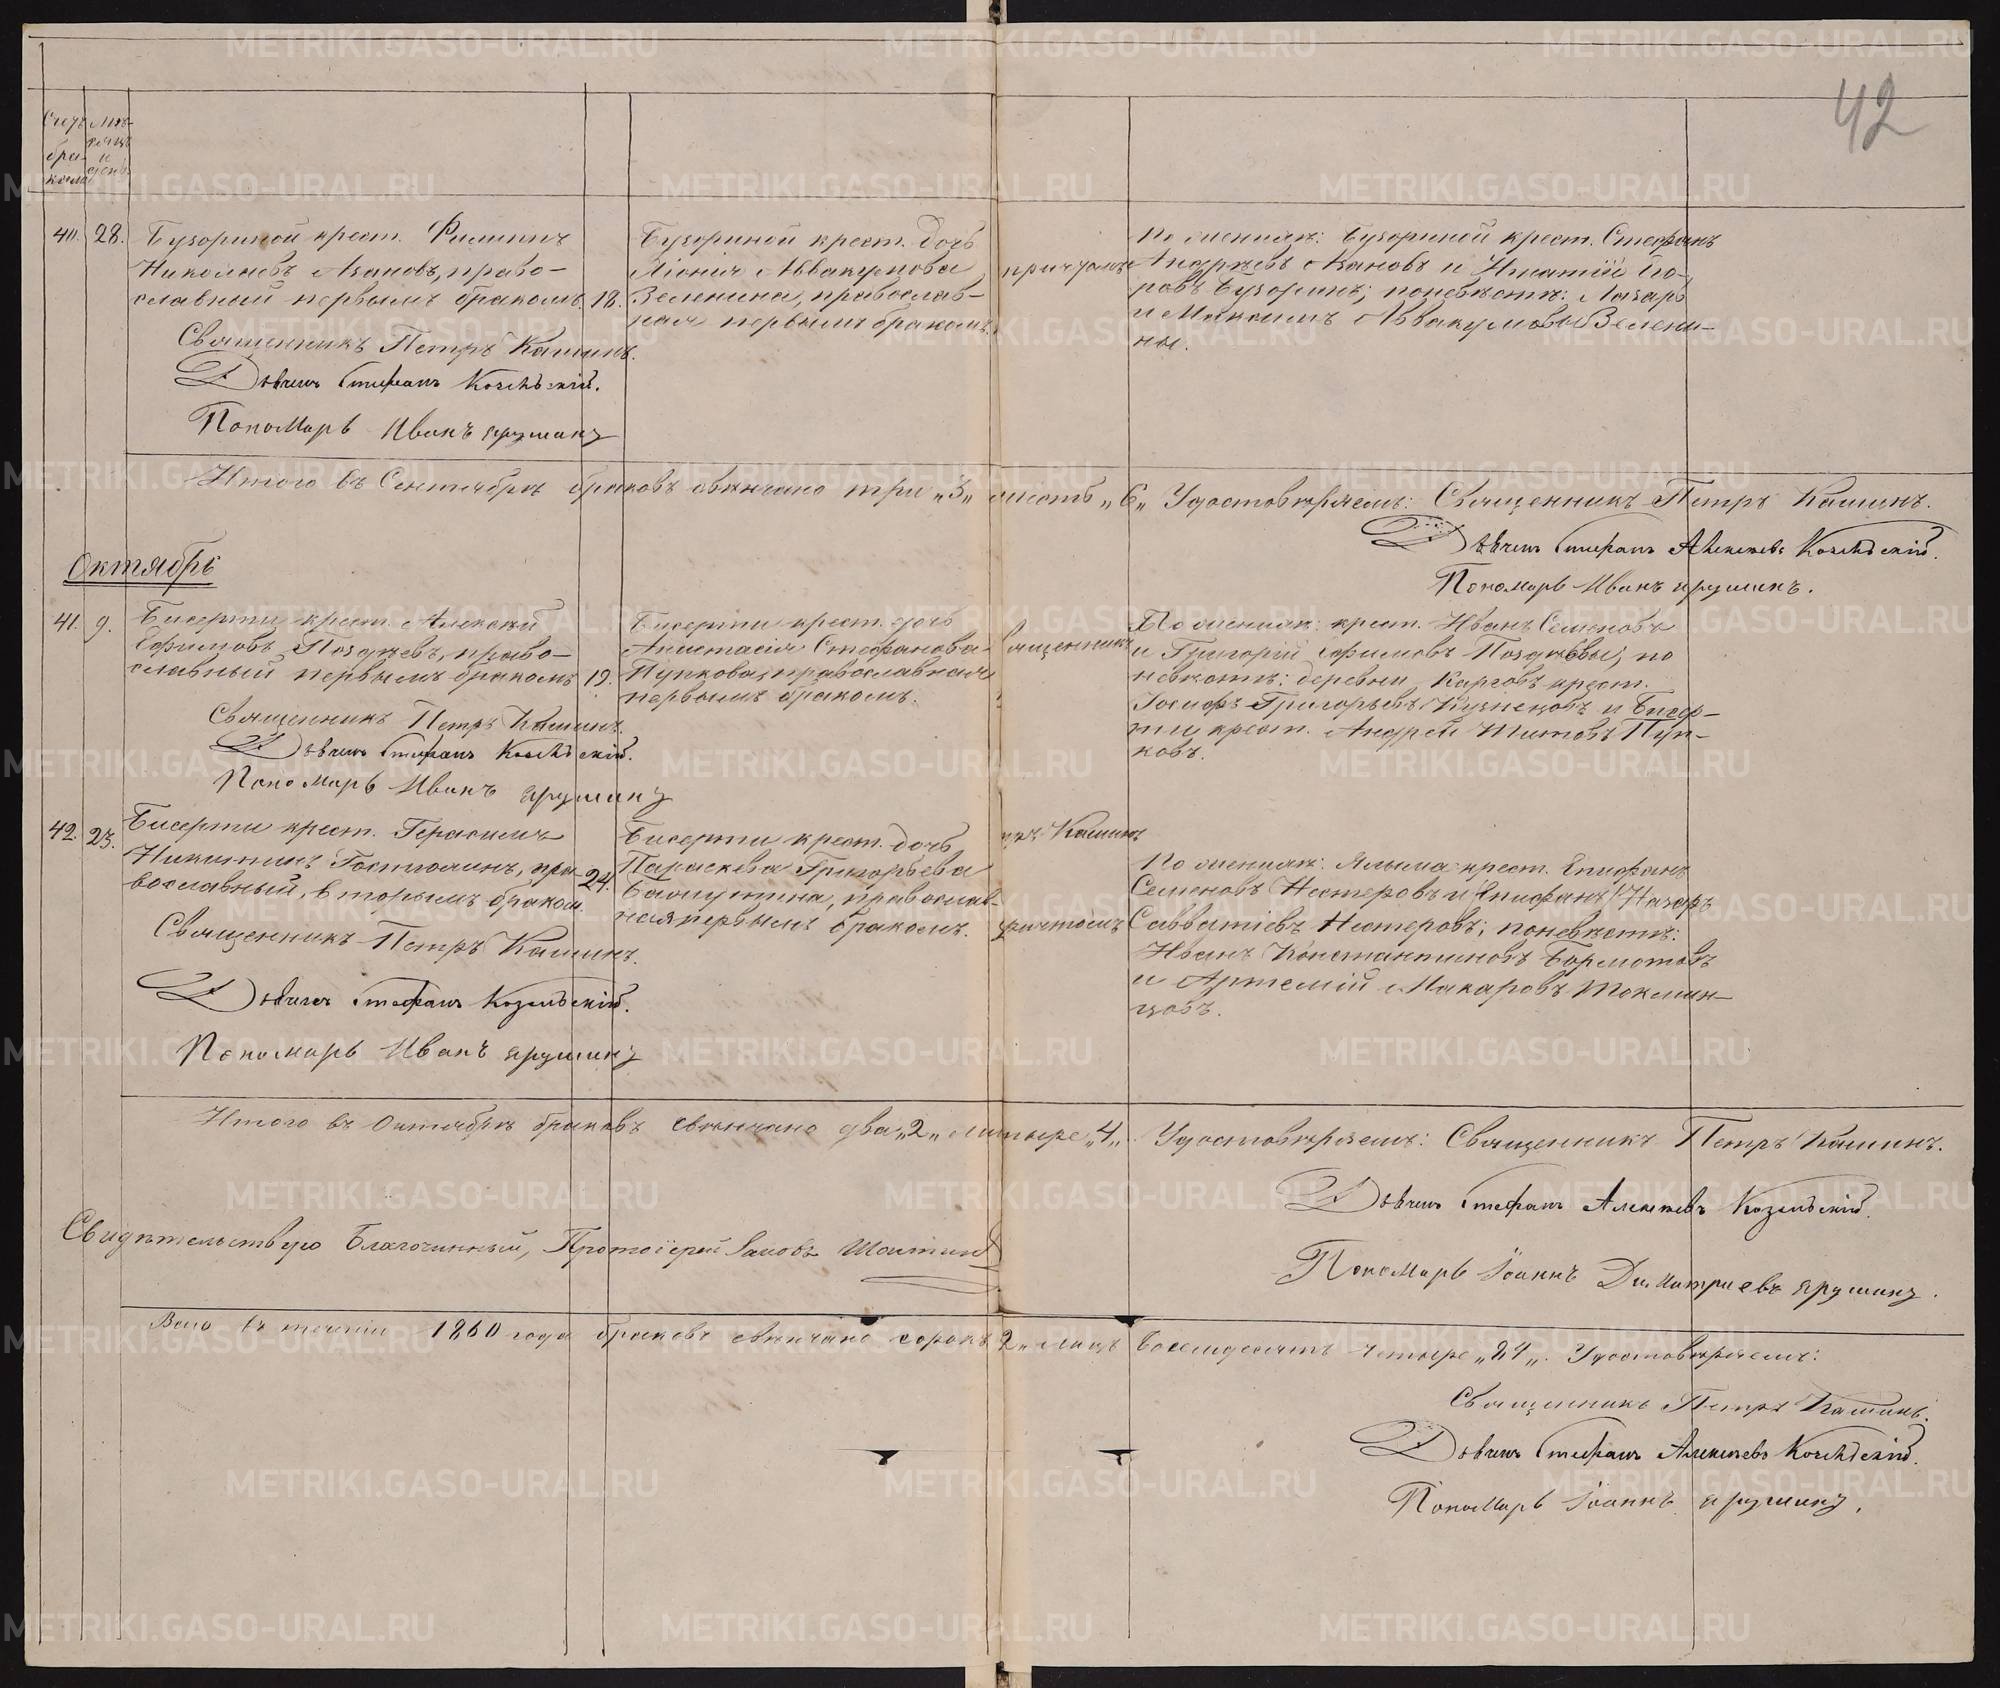 42
Счетъ бра-
ковъ
Мѣ-
сяцъ
и
день
40. 28. Бухориной крест. Филиппъ
Николаевъ Азановъ, право-
славный первымъ бракомъ. 18.
Священникъ Петръ Кашинъ.
Дьячекъ Стефанъ Козельскій.
Пономарь Иванъ Ярушинъ
Бухориной крест. дочь
Аввакумова
Зеленина, православ-
ная первымъ бракомъ.
причтомъ
По женихѣ: Бухориной крест. Стефанъ
Андреевъ Азановъ и Игнатій
Бухоринъ; поневѣстѣ: Лазарь
и Максимъ Аввакумовы Зелени-
ны.
Итого въ Сентябрѣ браковъ свѣнчано три „3„ шесть „6„ Удостовѣряемъ: Священникъ Петръ Кашинъ.
Дьячекъ Стефанъ Алексѣевъ Козельскій.
Пономарь Иванъ Ярушинъ.
Октябрь
41. 9. Бисерти крест. Алексѣй
Ефимовъ Поздѣевъ, право-
славный первымъ бракомъ 19.
Священникъ Петръ Кашинъ.
Дьячекъ Стефанъ Козельскій.
Пономарь Иванъ Ярушинъ
Бисерти крест. дочь
Анастасія Стефанова
Пупкова, православная
первымъ бракомъ.
Священникъ
По женихѣ: крест. Иванъ Семеновъ
и Григорій Ефимовъ Поздѣевы; по
невѣстѣ: деревни Каргов крест.
Іосифъ Григорьевъ Кузнецовъ и Бисер-
ти крест. Андрей Титовъ Пуп-
ковъ.
42. 23. Бисерти крест. Герасимъ
Никитинъ Гостюхинъ, пра-
вославный, вторымъ браком. 24.
Священникъ Петръ Кашинъ.
Дьячекъ Стефанъ Козельскій.
Пономарь Иванъ Ярушинъ
Бисерти крест. дочь
Параскева Григорьева
православ-
ная первымъ бракомъ.
Петръ Кашинъ
съ причтомъ
По женихѣ: Ялыма крест. Епифанъ
Семеновъ Нестеровъ и (Епифанъ) Назаръ
Савватіевъ Нестеровъ; поневѣстѣ:
Иванъ Константиновъ Бормотовъ
и Артемій Макаровъ Токмин-
цовъ.
Итого въ Октябрѣ браковъ свѣнчано два „2„ четыре „4„. Удостовѣряемъ: Священникъ Петръ Кашинъ.
Дьячекъ Стефанъ Алексѣевъ Козельскій.
Пономарь Іоаннъ Димитриевъ Ярушинъ.
Свидѣтельствую Благочинный, Протоіерей Іаковъ
Всего въ теченіи 1860 года браковъ свѣнчано сорокъ 2„ лицъ восемдесятъ четыре „84„. Удостовѣряемъ:
Священникъ Петръ Кашинъ.
Дьячекъ Стефанъ Алексѣевъ Козельскій.
Пономарь Іоаннъ Ярушинъ.
METRIKI.GASO-URAL.RU